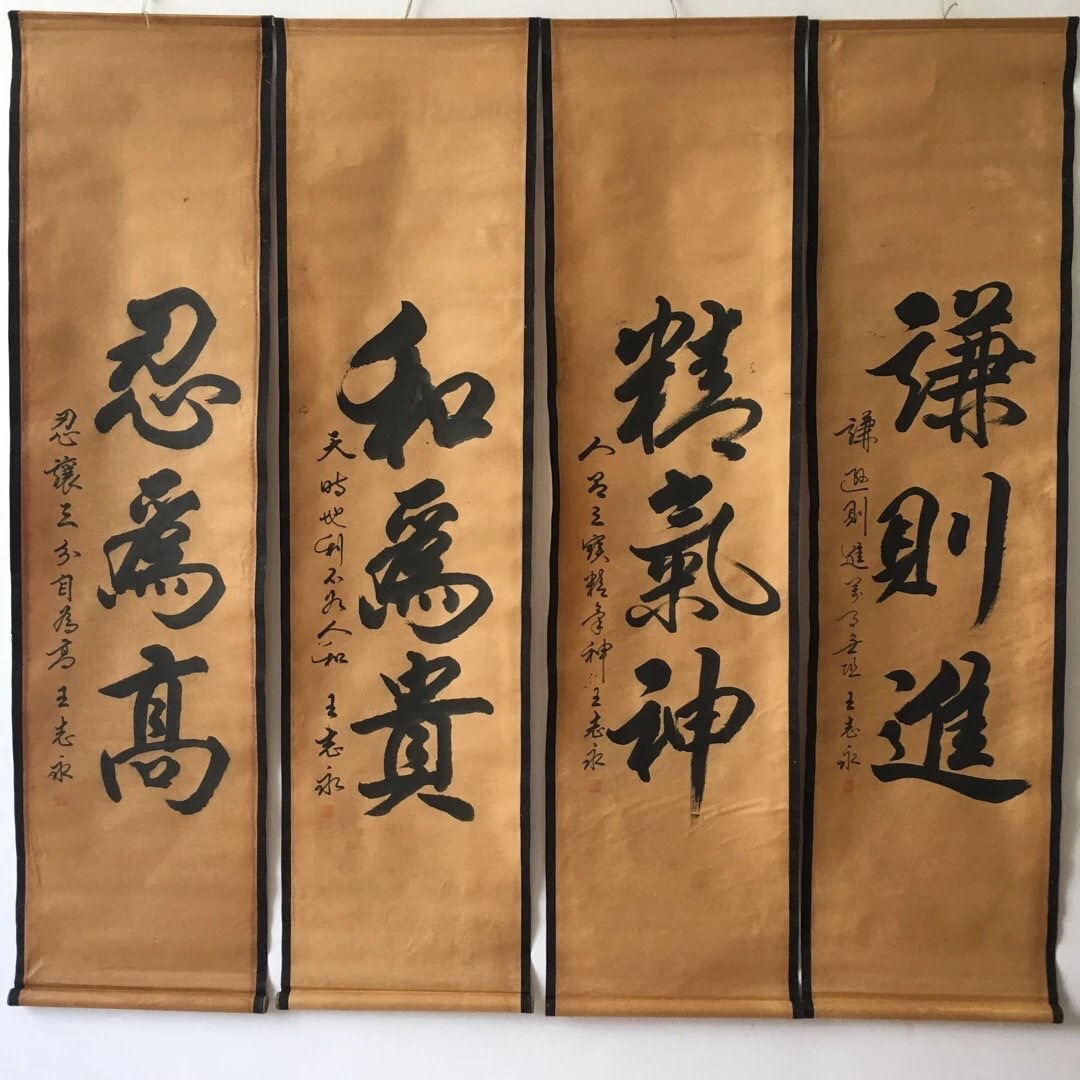 謙則進
謙遜則進萬事無阻 王志永
精氣神
人三寶精氣神 王志永
和爲貴
天時地利不如人和 王志永
忍爲高
忍讓三分自為高 王志永